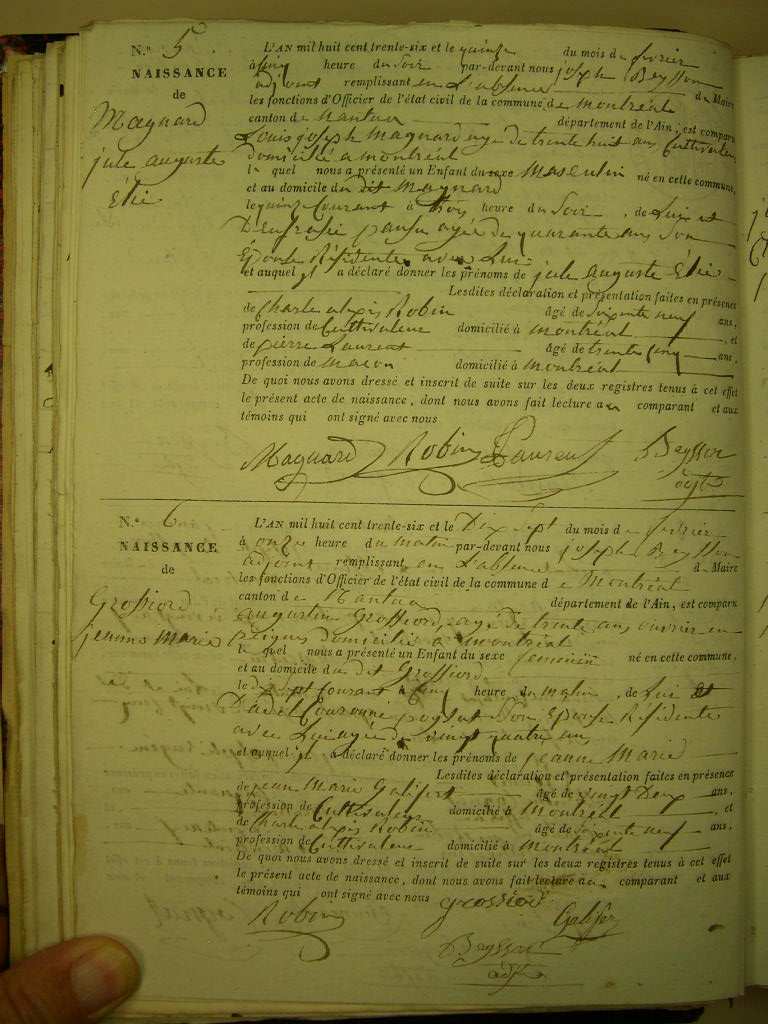 N.º 5
NAISSANCE
de
Magnard
jule auguste
Élie
L'AN mil huit cent trente-six et le quinze du mois de fevrier
à cinq heure du soir par-devant nous joseph Beysson
adjoint remplissant en l'absence du Maire
les fonctions d'Officier de l'état civil de la commune de montréal
canton de Nantua département de l'Ain, est comparu
Louis joseph Magnard age de trente huit ans Cultivateur
domicilié a montréal
le quel nous a présenté un Enfant du sexe masculin né en cette commune,
et au domicile du dit Magnard
le quinze Courant à trois heure du Soir, de Lui et
D'eufrosie agée de quarante ans Son
Épouse Résidente avec Lui
et auquel il a déclaré donner les prénoms de jule auguste Elie
Lesdites déclaration et présentation faites en présence
de Charle alexis Robin âgé de soixente neuf ans,
profession de Cultivateur domicilié à Montréal, et
de pierre Laurent âgé de trente cinq ans,
profession de macon domicilié à montréal
De quoi nous avons dressé et inscrit de suite sur les deux registres tenus à cet effet
le présent acte de naissance, dont nous avons fait lecture au comparant et aux
témoins qui ont signé avec nous
Magnard Robin Laurent Beysson
adjt
N.º 6
NAISSANCE
de
Grossiord
jeanne Marie
L'AN mil huit cent trente-six et le Dix Sept du mois de fevrier
à onze heure du matin par-devant nous joseph Beysson
adjoint remplissant en L'absence du Maire
les fonctions d'Officier de l'état civil de la commune de Montréal
canton de Nantua département de l'Ain, est comparu
augustin Grossiord, age de trente ans ouvrier en
peignes domicilié a montréal
le quel nous a présenté un Enfant du sexe feminin né en cette commune,
et au domicile du dit Grossiord
le dix sept Courant à cinq heure du matin, de Lui et
Son Epouse Résidente
avec Lui agée de vingt quatre ans
et auquel il a déclaré donner les prénoms de jeanne Marie
Lesdites déclaration et présentation faites en présence
de jean Marie Galifert âgé de vingt Deux ans,
profession de Cultivateur domicilié à Montréal, et
de Charle alexis Robin âgé de Soixente neuf ans,
profession de Cultivateur domicilié à Montréal
De quoi nous avons dressé et inscrit de suite sur les deux registres tenus à cet effet
le présent acte de naissance, dont nous avons fait lecture au comparant et aux
témoins qui ont signé avec nous grossiord
Robin Galifer
Beysson
adjt